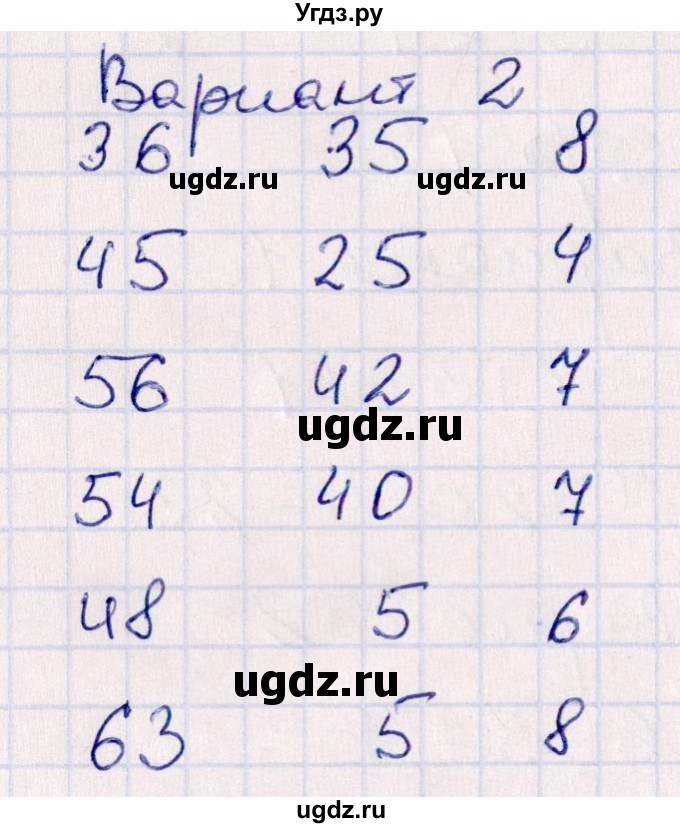 Угдз.ру
Вариант 2
36 35 8
ugdz.ru ugdz.ru
45 25 4
56 42 7
ugdz.ru
54 40 7
48 5 6
ugdz.ru
63 5 8
ugdz.ru